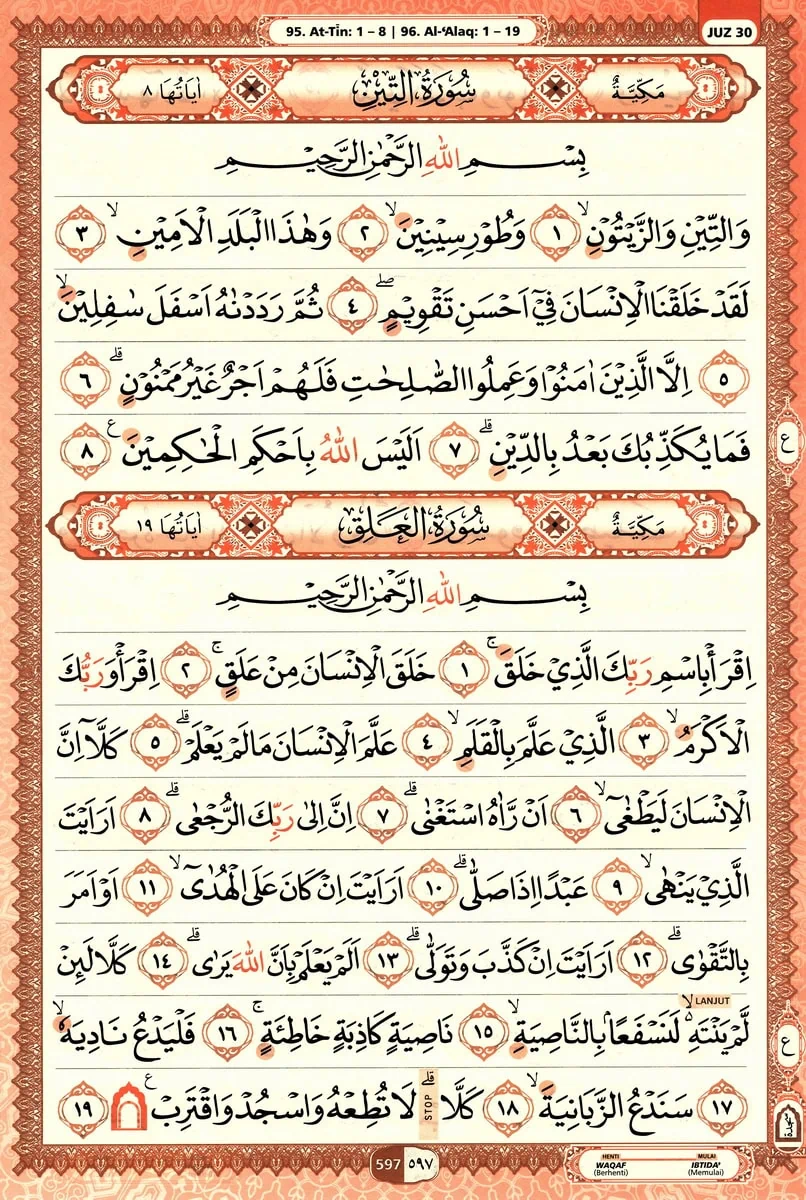 95. At-Tīn: 1 – 8 | 96. Al-‘Alaq: 1 – 19
JUZ 30
مَكِّيَّةٌ سُوْرَةُ التِّيْنِ اٰيَاتُهَا ٨
بِسْمِ اللهِ الرَّحْمٰنِ الرَّحِيْمِ
وَالتِّيْنِ وَالزَّيْتُوْنِۙ ١ وَطُوْرِ سِيْنِيْنَۙ ٢ وَهٰذَا الْبَلَدِ الْاَمِيْنِۙ ٣
لَقَدْ خَلَقْنَا الْاِنْسَانَ فِيْٓ اَحْسَنِ تَقْوِيْمٍۖ ٤ ثُمَّ رَدَدْنٰهُ اَسْفَلَ سٰفِلِيْنَۙ
٥ اِلَّا الَّذِيْنَ اٰمَنُوْا وَعَمِلُوا الصّٰلِحٰتِ فَلَهُمْ اَجْرٌ غَيْرُ مَمْنُوْنٍۗ ٦
فَمَا يُكَذِّبُكَ بَعْدُ بِالدِّيْنِۗ ٧ اَلَيْسَ اللهُ بِاَحْكَمِ الْحٰكِمِيْنَ ع ٨
ع
مَكِّيَّةٌ سُوْرَةُ الْعَلَقِ اٰيَاتُهَا ١٩
بِسْمِ اللهِ الرَّحْمٰنِ الرَّحِيْمِ
اِقْرَأْ بِاسْمِ رَبِّكَ الَّذِيْ خَلَقَۚ ١ خَلَقَ الْاِنْسَانَ مِنْ عَلَقٍۚ ٢ اِقْرَأْ وَرَبُّكَ
الْاَكْرَمُۙ ٣ الَّذِيْ عَلَّمَ بِالْقَلَمِۙ ٤ عَلَّمَ الْاِنْسَانَ مَا لَمْ يَعْلَمْۗ ٥ كَلَّآ اِنَّ
الْاِنْسَانَ لَيَطْغٰىٓۙ ٦ اَنْ رَّاٰهُ اسْتَغْنٰىۗ ٧ اِنَّ اِلٰى رَبِّكَ الرُّجْعٰىۗ ٨ اَرَاَيْتَ
الَّذِيْ يَنْهٰىۙ ٩ عَبْدًا اِذَا صَلّٰىۗ ١٠ اَرَاَيْتَ اِنْ كَانَ عَلَى الْهُدٰىٓۙ ١١ اَوْ اَمَرَ
بِالتَّقْوٰىۗ ١٢ اَرَاَيْتَ اِنْ كَذَّبَ وَتَوَلّٰىۗ ١٣ اَلَمْ يَعْلَمْ بِاَنَّ اللهَ يَرٰىۗ ١٤ كَلَّا لَىِٕنْ
LANJUT
لَّمْ يَنْتَهِ ەۙ لَنَسْفَعًاۢ بِالنَّاصِيَةِۙ ١٥ نَاصِيَةٍ كَاذِبَةٍ خَاطِئَةٍۚ ١٦ فَلْيَدْعُ نَادِيَهٗۙ
ع
١٧ سَنَدْعُ الزَّبَانِيَةَۙ ١٨ كَلَّاۗ STOP لَا تُطِعْهُ وَاسْجُدْ وَاقْتَرِبْ ۩ ع ١٩
سجدة
597 ٥٩٧
HENTI WAQAF (Berhenti)
MULAI IBTIDA' (Memulai)